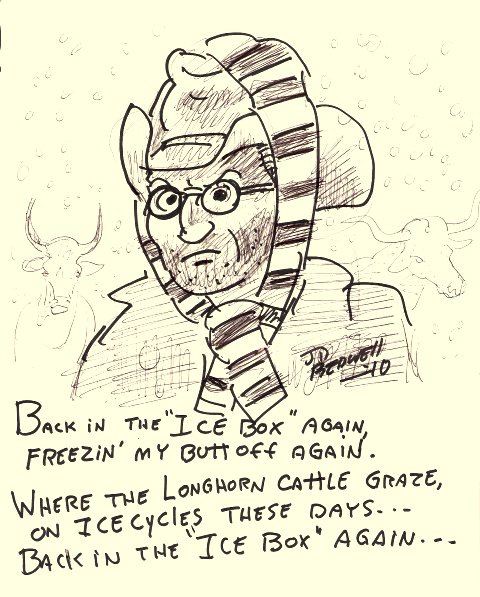 JD BEDWELL
'10
BACK IN THE "ICE BOX" AGAIN,
FREEZIN' MY BUTT OFF AGAIN.
WHERE THE LONGHORN CATTLE GRAZE,
ON ICECYCLES THESE DAYS...
BACK IN THE "ICE BOX" AGAIN...